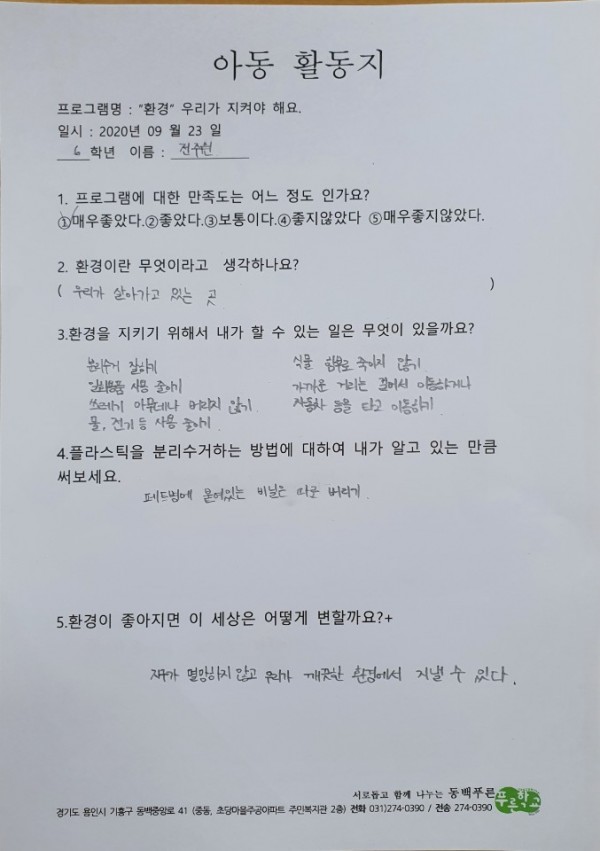 아동 활동지
프로그램명 : "환경" 우리가 지켜야 해요.
일시 : 2020년 09 월 23 일
6 학년 이름 : 전주원
1. 프로그램에 대한 만족도는 어느 정도 인가요?
①매우좋았다.②좋았다.③보통이다.④좋지않았다 ⑤매우좋지않았다.
2. 환경이란 무엇이라고 생각하나요?
( 우리가 살아가고 있는 곳 )
3.환경을 지키기 위해서 내가 할 수 있는 일은 무엇이 있을까요?
분리수거 잘하기
일회용품 사용 줄이기
쓰레기 아무데나 버리지 않기
물, 전기 등 사용 줄이기
식물 함부로 죽이지 않기
가까운 거리는 걸어서 이동하거나
자동차 등을 타고 이동하기
4.플라스틱을 분리수거하는 방법에 대하여 내가 알고 있는 만큼
써보세요.
페트병에 붙어있는 비닐은 따로 버리기.
5.환경이 좋아지면 이 세상은 어떻게 변할까요?+
지구가 멸망하지 않고 우리가 깨끗한 환경에서 지낼 수 있다.
서로돕고 함께 나누는 동백푸른 푸른학교
경기도 용인시 기흥구 동백중앙로 41 (중동, 초당마을주공아파트 주민복지관 2층) 전화 031)274-0390 / 전송 274-0390